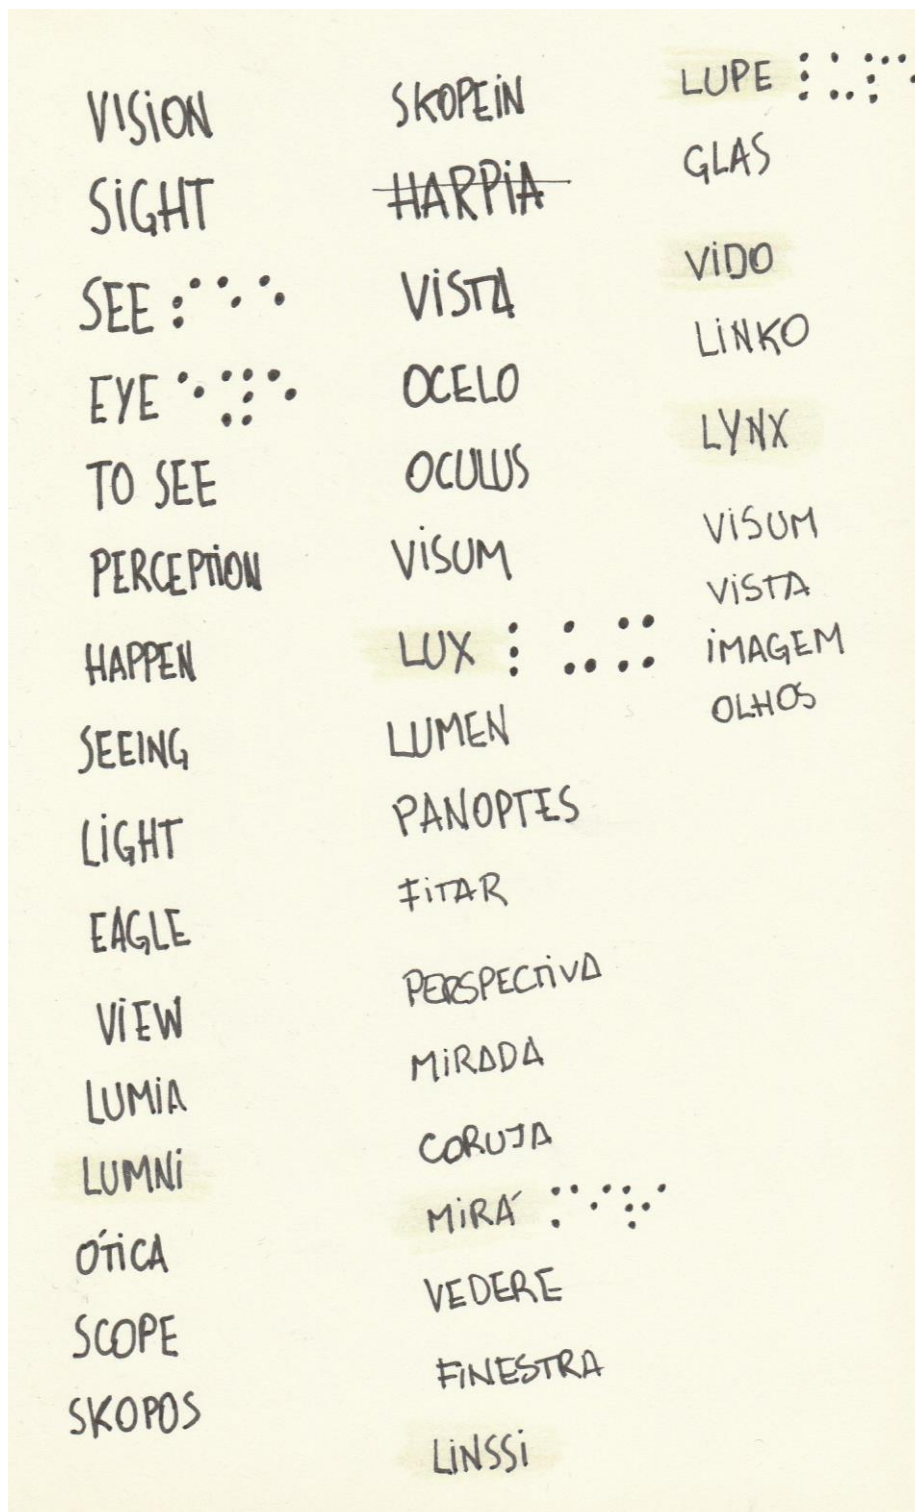 VISION
SIGHT
SEE ⠎⠑⠑
EYE ⠑⠽⠑
TO SEE
PERCEPTION
HAPPEN
SEEING
LIGHT
EAGLE
VIEW
LUMIA
LUMNI
ÓTICA
SCOPE
SKOPOS
SKOPEIN
HARPIA
VISTA
OCELO
OCULUS
VISUM
LUX ⠇⠥⠭
LUMEN
PANOPTES
FITAR
PERSPECTIVA
MIRADA
CORUJA
MIRÁ
VEDERE
FINESTRA
LINSSI
LUPE ⠇⠥⠏
GLAS
VIDO
LINKO
LYNX
VISUM
VISTA
IMAGEM
OLHOS